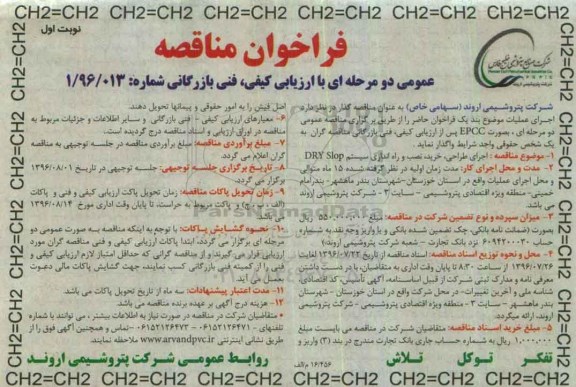 CH2=CH2 CH2=CH2 CH2=CH2 CH2=CH2 CH2=CH2 CH2=CH2 CH2=CH2
نوبت اول
فراخوان مناقصه
عمومی دو مرحله ای با ارزیابی کیفی، فنی بازرگانی شماره: ۱/۹۶/۰۱۳
شرکت پتروشیمی اروند (سهامی خاص) به عنوان مناقصه گذار در نظر دارد
اجرای عملیات موضوع بند یک فراخوان حاضر را از طریق برگزاری مناقصه عمومی
دو مرحله ای، بصورت EPCC پس از ارزیابی کیفی، فنی بازرگانی مناقصه گران به
یک شخص حقوقی واجد شرایط واگذار نماید.
۱- موضوع مناقصه: اجرای طراحی، خرید، نصب و راه اندازی سیستم DRY Slop
۲- مدت و محل اجرای کار: مدت زمان اولیه در نظر گرفته شده ۱۵ ماه متوالی
و محل اجرای عملیات واقع در استان خوزستان - شهرستان بندر ماهشهر - بندر امام
خمینی - منطقه ویژه اقتصادی پتروشیمی - سایت ۳ - شرکت پتروشیمی اروند می باشد
۳- میزان سپرده و نوع تضمین شرکت در مناقصه: مبلغ
بصورت (ضمانت نامه بانکی، چک تضمین شده بانکی و یا واریز وجه نقد به شماره
حساب ۶۰۹۴۲۰۰۳۰ نزد بانک تجارت - شعبه شرکت پتروشیمی اروند)
۴- محل و نحوه توزیع اسناد مناقصه: اسناد مناقصه از تاریخ ۱۳۹۶/۰۷/۲۲ لغایت
۱۳۹۶/۰۷/۲۶ از ساعت ۸:۳۰ تا پایان وقت اداری به متقاضیان، با در دست داشتن
معرفی نامه و مدارک ثبتی شرکت از قبیل اساسنامه، آگهی تأسیس، کد اقتصادی،
شناسه ملی و آخرین تغییرات - در محل شرکت واقع در استان خوزستان - شهرستان
بندر ماهشهر - سایت ۳ - منطقه ویژه اقتصادی پتروشیمی - شرکت پتروشیمی
اروند، ارائه میگردد.
۵- مبلغ خرید اسناد مناقصه: متقاضیان شرکت در مناقصه می بایست مبلغ
۱,۰۰۰,۰۰۰ ریال به شماره حساب جاری بانک تجارت مندرج در بند (۳) واریز و
اصل فیش را به امور حقوقی و پیمانها تحویل دهند.
۶- معیارهای ارزیابی کیفی - فنی بازرگانی و سایر اطلاعات و جزئیات مربوط به
مناقصه در اوراق ارزیابی و اسناد مناقصه درج گردیده است.
۷- مبلغ برآوردی مناقصه: مبلغ برآوردی مناقصه در جلسه توجیهی به مناقصه
گران اعلام می گردد
۸- تاریخ برگزاری جلسه توجیهی: جلسه توجیهی در تاریخ ۱۳۹۶/۰۸/۰۱
برگزار می گردد.
۹- زمان تحویل پاکات مناقصه: زمان تحویل پاکات ارزیابی کیفی و فنی و پاکات
(الف، ب و ج)، و پاکات نرخ به حراست، تا پایان وقت اداری مورخ ۱۳۹۶/۰۸/۱۴
می باشد.
۱۰- نحوه گشایش پاکات: با توجه به اینکه مناقصه به صورت عمومی دو
مرحله ای برگزار می گردد، ابتدا پاکات ارزیابی کیفی و فنی مناقصه گران مورد
ارزیابی قرار می گیرند و از مناقصه گرانی که حداقل امتیاز لازم ارزیابی کیفی و
فنی را از کمیته فنی بازرگانی کسب نمایند، جهت گشایش پاکات مالی دعوت
بعمل می آید.
۱۱- مدت اعتبار پیشنهادات: سه ماه از تاریخ تحویل پاکات می باشد.
۱۲- هزینه درج آگهی بر عهده برنده مناقصه می باشد.
* متقاضیان شرکت در مناقصه در صورت نیاز به اطلاعات بیشتر، می توانند با شماره
تلفنهای ۰۶۱۵۲۱۲۶۴۷۱ - ۰۶۱۵۲۱۲۶۴۷۳ تماس و همچنین آگهی فوق را از
طریق نشانی اینترنتی www.arvandpvc.ir ملاحظه نمایند.
۱۶/۴۵۶ م/الف
تفکر توکل تلاش
روابط عمومی شرکت پتروشیمی اروند
CH2=CH2 CH2=CH2 CH2=CH2 CH2=CH2 CH2=CH2 CH2=CH2 CH2=CH2